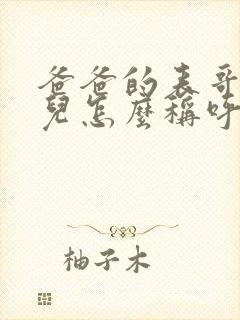 爸爸的表哥
兒怎麼稱呼
柚子木